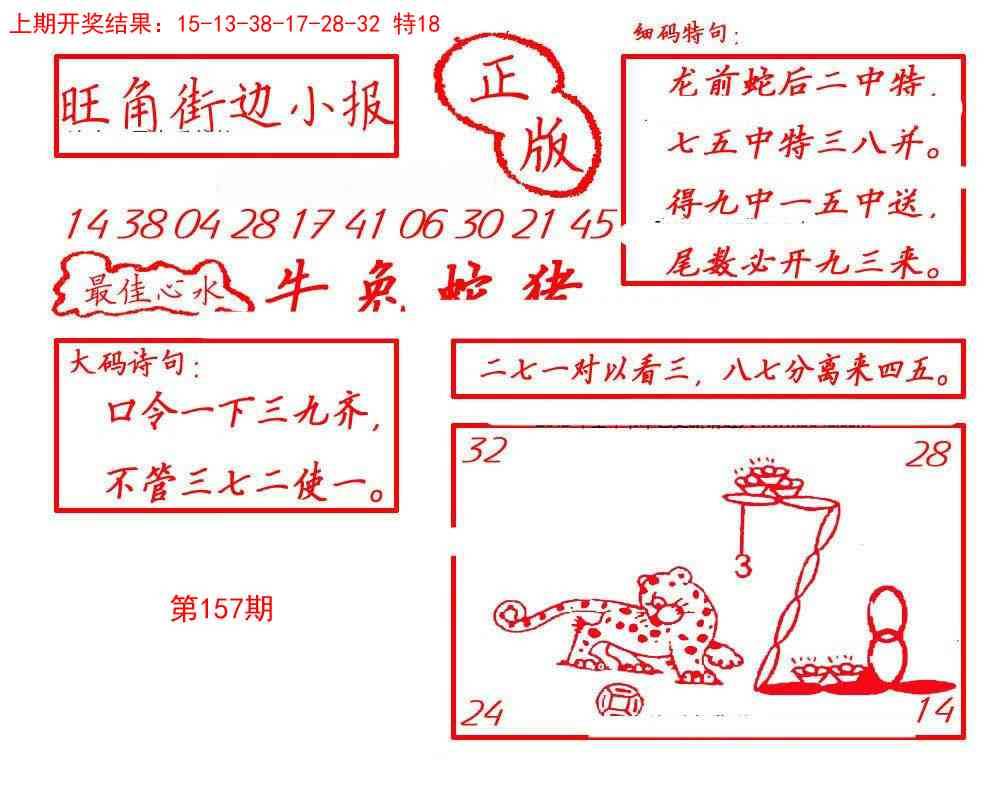 上期开奖结果：15-13-38-17-28-32 特18
旺角街边小报
正版
细码特句：
龙前蛇后二中特，
七五中特三八并。
得九中一五中送，
尾数必开九三来。
14 38 04 28 17 41 06 30 21 45
最佳心水
牛兔蛇猪
大码诗句：
口令一下三九齐，
不管三七二使一。
二七一对以看三，八七分离来四五。
32
28
3
24
14
第157期